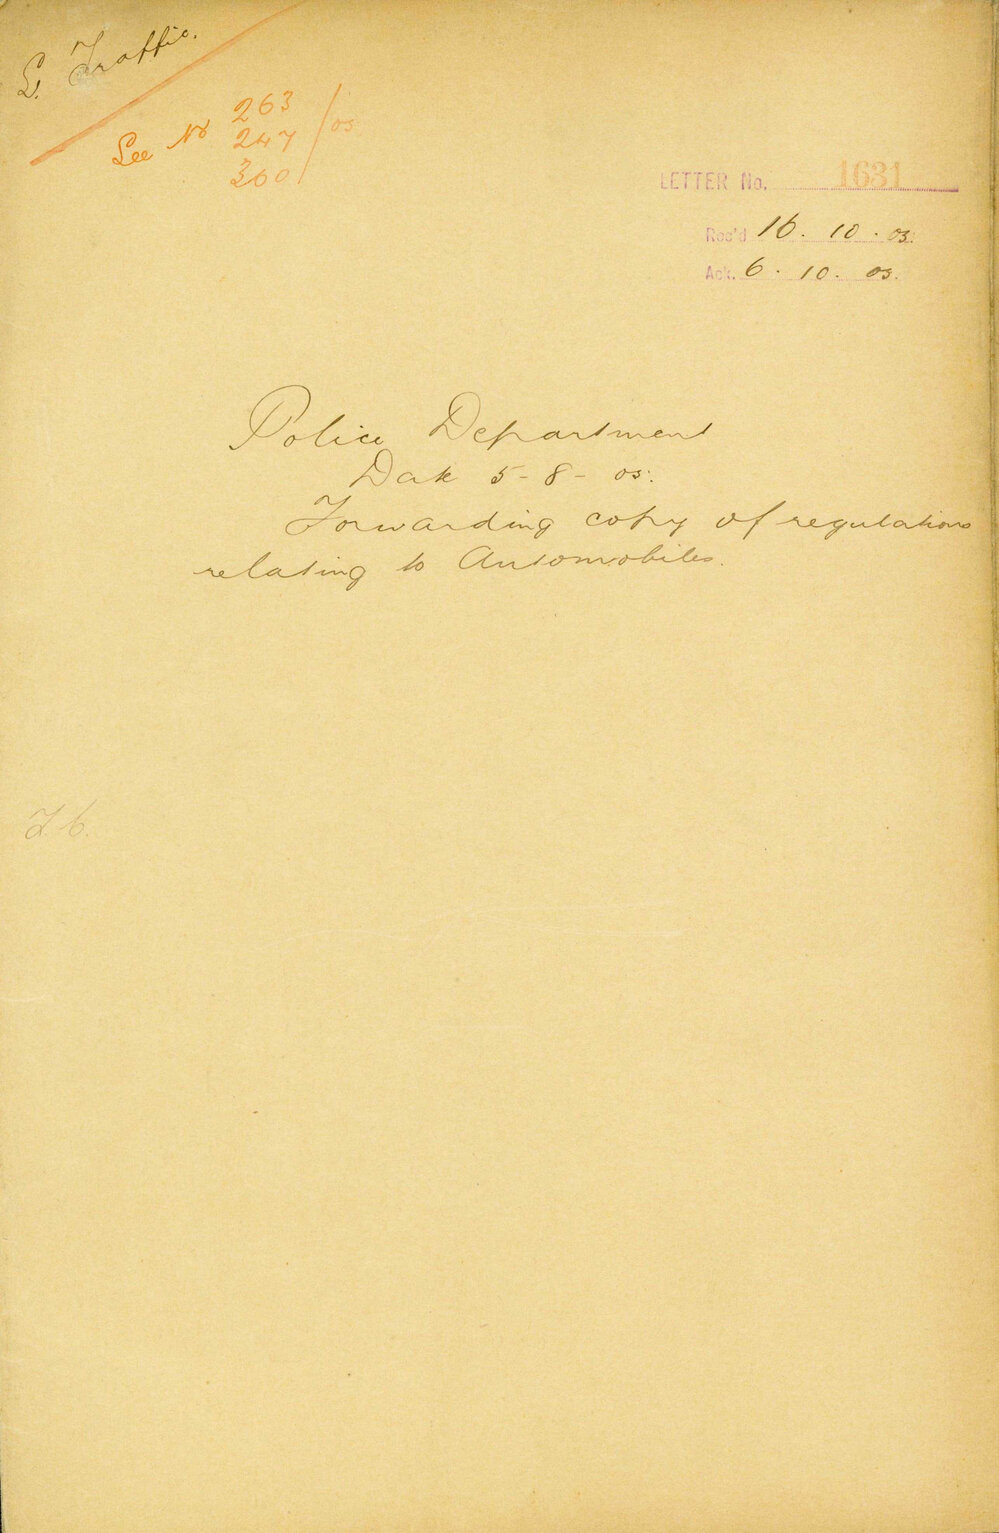 L. Traffic.
See No 263
247
360
/03
LETTER No. 1631
Rec'd 16. 10. 03.
Ack. 6. 10. 03.
Police Department
Date 5-8-03.
Forwarding copy of regulations
relating to Automobiles.